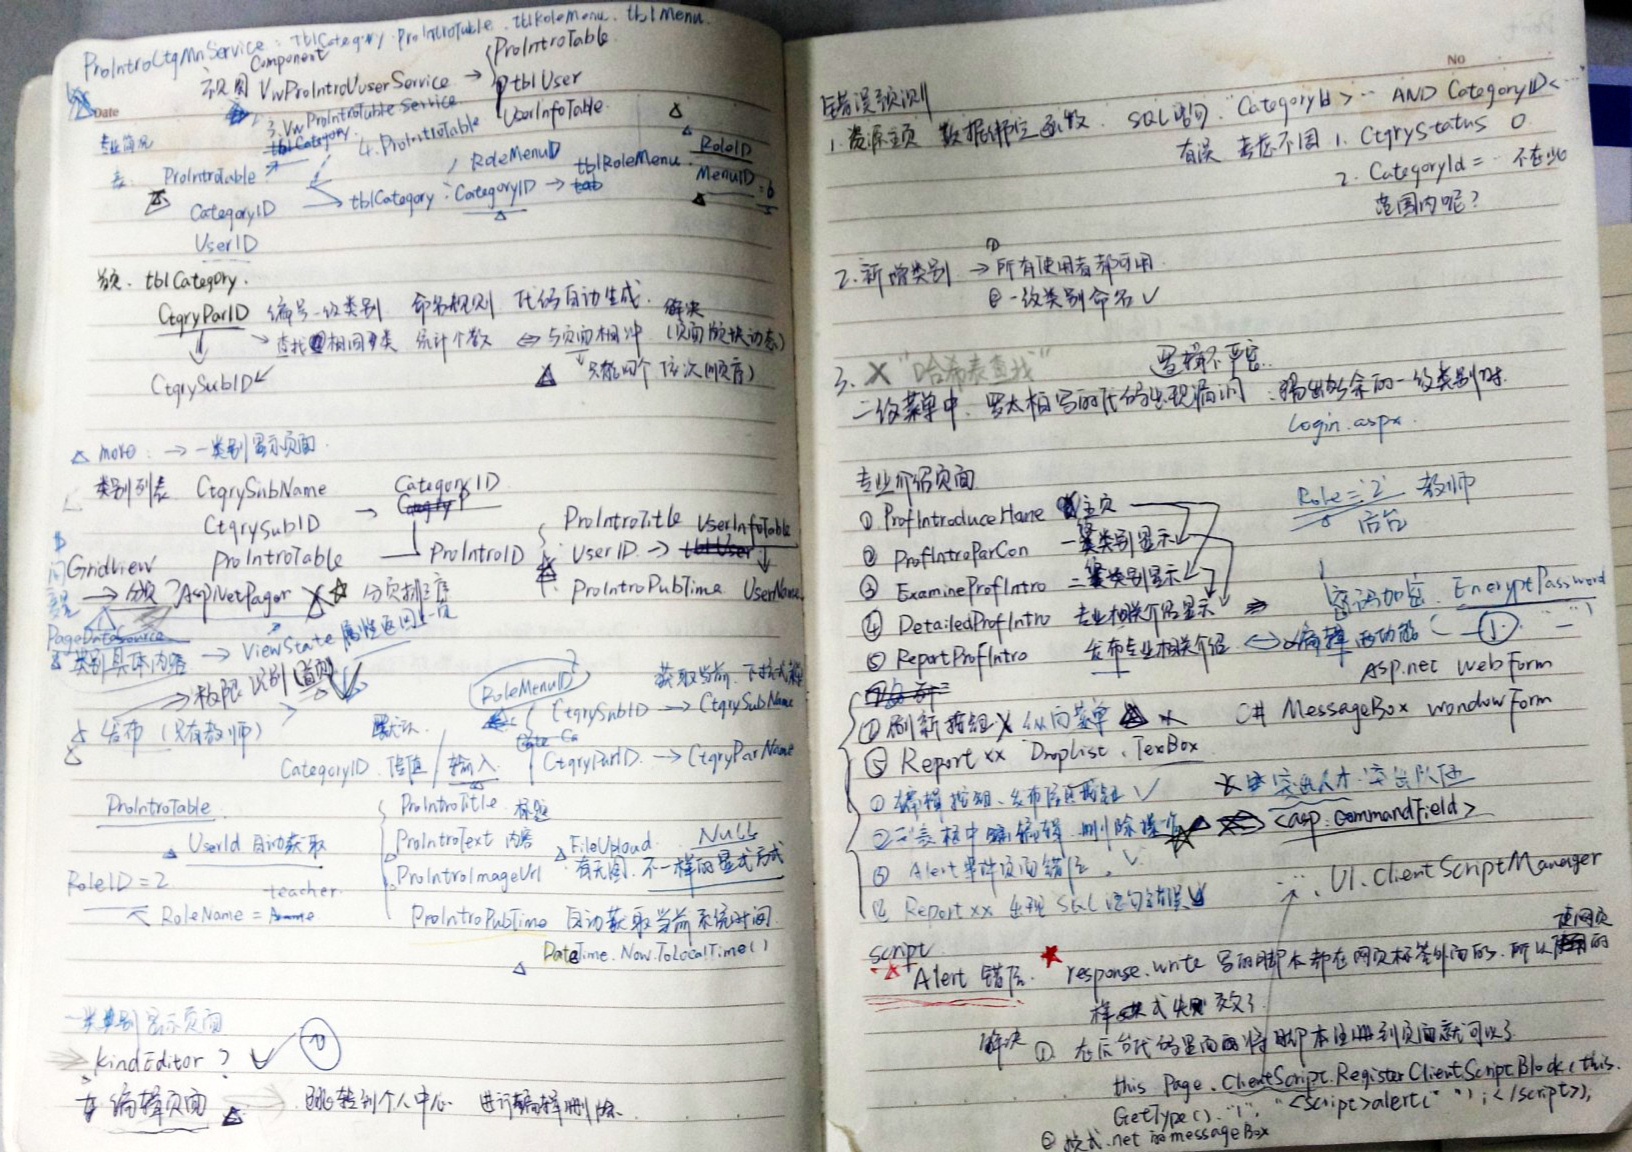 ProIntroCtgMnService : tblCategory. ProIntroTable. tblRoleMenu. tblMenu.
Component
视图 VwProIntroUserService → ProIntroTable
tblUser
UserInfoTable
Date
3. VwProIntroTable Service
专业简况 tblCategory. 4. ProIntroTable
表 ProIntroTable RoleMenuID tblRoleMenu. RoleID
CategoryID → tblCategory : CategoryID → MenuID = 6
UserID
tblCategory.
CtgryParID 编号一级类别 命名规则 代码自动生成. 解决
→ 查找相同类 统计个数 ⇔ 与页面相冲 (页面版块动态)
CtgrySubID 只能四个 依次顺序)
△ more → 一类别显示页面.
类别列表 CtgrySubName → CategoryID
CtgrySubID
ProIntroTable ProIntroID
ProIntroTitle UserInfoTable
UserID → tblUser
ProIntroPubTime UserName
Gridview
→ 分页 AspNetPager X ☆ 分页排序
PageDataSource
类别具体内容 → ViewState 属性返回上一页
→ 权限识别
发布 (只有教师) 默认.
RoleMenuID 获取当前
CtgrySubID → CtgrySubName
CategoryID 传值 / 输入 CtgryParID → CtgryParName
ProIntroTable ProIntroTitle 标题
UserId 自动获取 ProIntroText 内容 FileUpload. NULL
ProIntroImageUrl 有无图. 不一样的显示方式
RoleID = 2 teacher.
RoleName = ProIntroPubTime 自动获取当前系统时间.
DateTime.Now.ToLocalTime()
一类别显示页面
KindEditor ? ✓
编辑页面 跳转到个人中心 进行编辑删除.
No
错误预测
1. 资源主页 数据绑定函数. SQL语句. CategoryId > ··· AND CategoryID < ···
有误 考虑不周 1. CtgryStatus 0
2. CategoryId = ·· 不在此
范围内呢?
①
2. 新增类别 → 所有使用者都可用
② 一级类别命名 ✓
3. X "哈希表查找" 逻辑不严密.
二级菜单中. 罗太相写的代码出现漏洞 : 输出多余的一级类别时.
Login.aspx.
专业介绍页面 Role = '2' 教师
后台
① ProfIntroduceHome 主页
② ProfIntroParCon 一类别显示
③ ExamineProfIntro 二类别显示
④ DetailedProfIntro 专业相关介绍显示
密码加密. EncryptPassword
⑤ ReportProfIntro 发布专业相关介绍 ⇔ 编辑的功能
Asp.net WebForm
① 刷新按钮 X 纵向菜单 C# MessageBox wondowForm
Report xx Droplist. TexBox
① 编辑按钮. 发布后 ✓ 突出人才. 突出队伍
② 表格中 编辑. 删除操作 <asp: CommandField>
③ Alert事件页面错位. ✓
Report xx 出现 SQL 语句错误 UI.ClientScriptManager
script
Alert 错位. ★ response.write 写的脚本都在网页标签外面的. 所以使网页的
样式失效了.
解决 ①. 在后台代码里面将脚本注册到页面就可以了
this Page. ClientScript.RegisterClientScriptBlock(this.
GetType(). "1". "<script>alert(" ");</script>);
② 模式.net 的messageBox